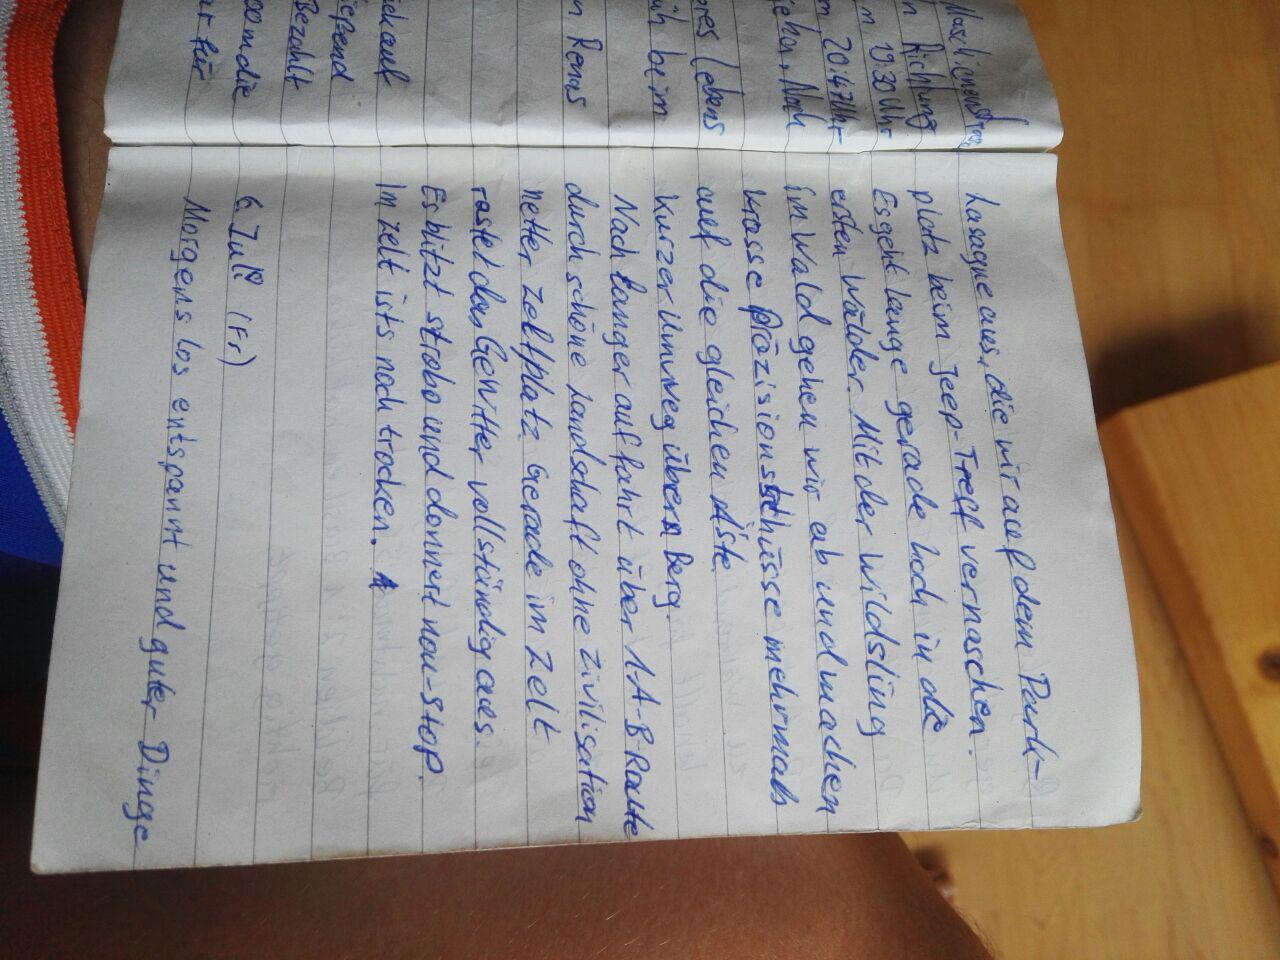 Richtung
19:30 Uhr
20:47 Uhr
Nach
Lebens
beim
Renas
auf
Bezahlt
die
für
Lasagne aus, die wir auf dem Park-
platz beim Jeep-Treff vernaschen.
Es geht lange gerade hoch in die
ersten Wälder. Mit der Wildsling
im Wald gehen wir ab und machen
krasse Präzisionsschüsse mehrmals
auf die gleichen Äste.
Kurzer Umweg übern Berg.
Nach langer auffahrt über 1-A-B-Route
durch schöne Landschaft ohne Zivilisation
netter Zeltplatz. Gerade im Zelt
rastet das Gewitter vollständig aus.
Es blitzt strobo und donnert non-stop.
Im Zelt ists noch trocken.
6. Juli (Fr)
Morgens los entspannt und guter Dinge